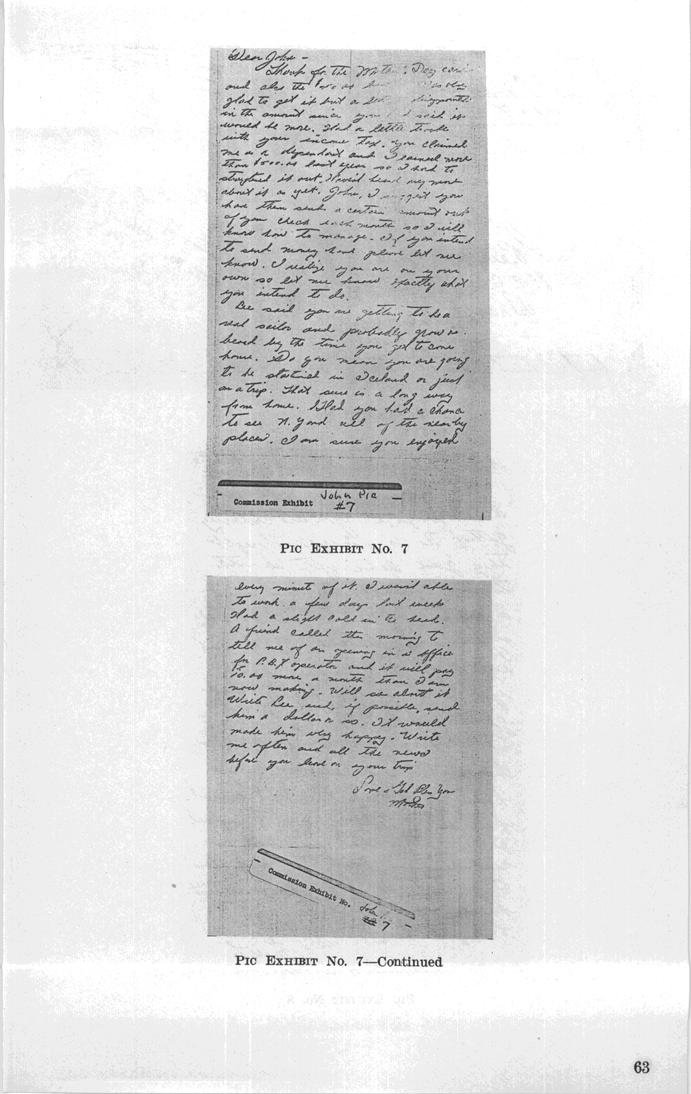 Dear John –
Thank for the
and also the as
glad to get it but a
in the amount since you said it
would be more. Had a little trouble
with your income tax. You claimed
me as a dependent and I earned more
than last year so I had to
straighten it out. Haven't heard any more
about it as yet. John, I suggest you
have them send a certain amount out
of your check each month so I will
know how to manage. If you intend
to send money home please let me
know. I realize you are on your
own so let me know exactly what
you intend to do.
Lee said you are getting to be a
real sailor and probably grow a
beard by the time you get to come
home. Do you mean you are going
to be stationed in Iceland or just
on a trip. That sure is a long way
from home. Glad you had a chance
to see N.Y. and all of the nearby
places. I am sure you enjoyed
Commission Exhibit John Pic
#7
PIC EXHIBIT No. 7
every minute of it. I wasn't able
to work a few days last week
Had a slight cold in the head.
A friend called this morning to
tell me of an opening in office
for P.B.X operator and it will pay
more a month than I am
now making. Will see about it
Write Lee and, if possible, send
him a dollar or so. It would
make him very happy. Write
me often and all the news
before you leave on your trip
Love & God Bless You
Mother
Commission Exhibit No. John
7
PIC EXHIBIT No. 7—Continued
63